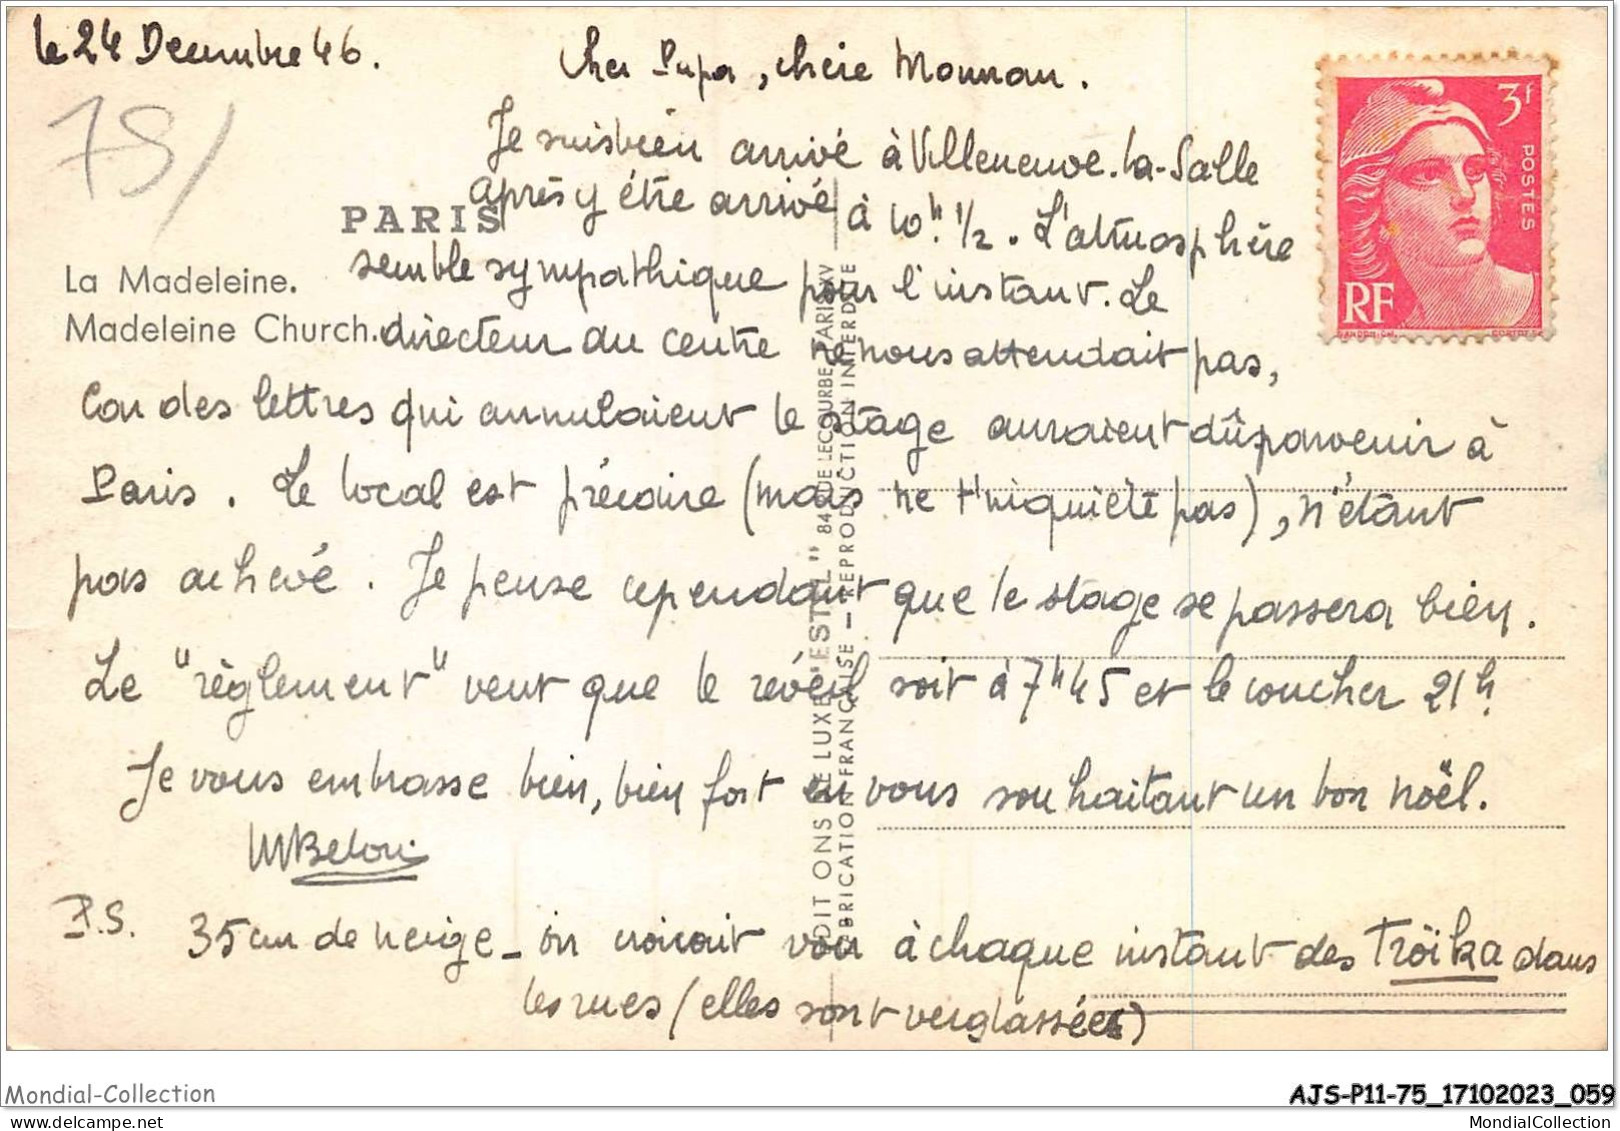 le 24 Decembre 46.
Cher Papa, chère Maman.
75/
Je suis bien arrivé à Villeneuve-la-Salle
Après y être arrivé à 10h. 1/2. L'atmosphère
semble sympathique pour l'instant. Le
directeur du centre ne nous attendait pas,
Car des lettres qui annulaient le stage auraient dû parvenir à
Paris. Le local est précaire (mais ne t'niquiète pas), n'étant
pas achevé. Je pense cependant que le stage se passera bien.
Le "règlement" veut que le réveil soit à 7h45 et le coucher 21h.
Je vous embrasse bien, bien fort en vous souhaitant un bon noël.
P.S. 35 cm de neige - on croirait voir à chaque instant des Troïka dans
les rues (elles sont verglassées)
PARIS
La Madeleine.
Madeleine Church.
3f
POSTES
RF
ÉDITIONS DE LUXE "ESTEL" 84, RUE LECOURBE, PARIS-XV
FABRICATION FRANÇAISE - REPRODUCTION INTERDITE
Mondial-Collection
AJS-P11-75_17102023_059
www.delcampe.net
MondialCollection